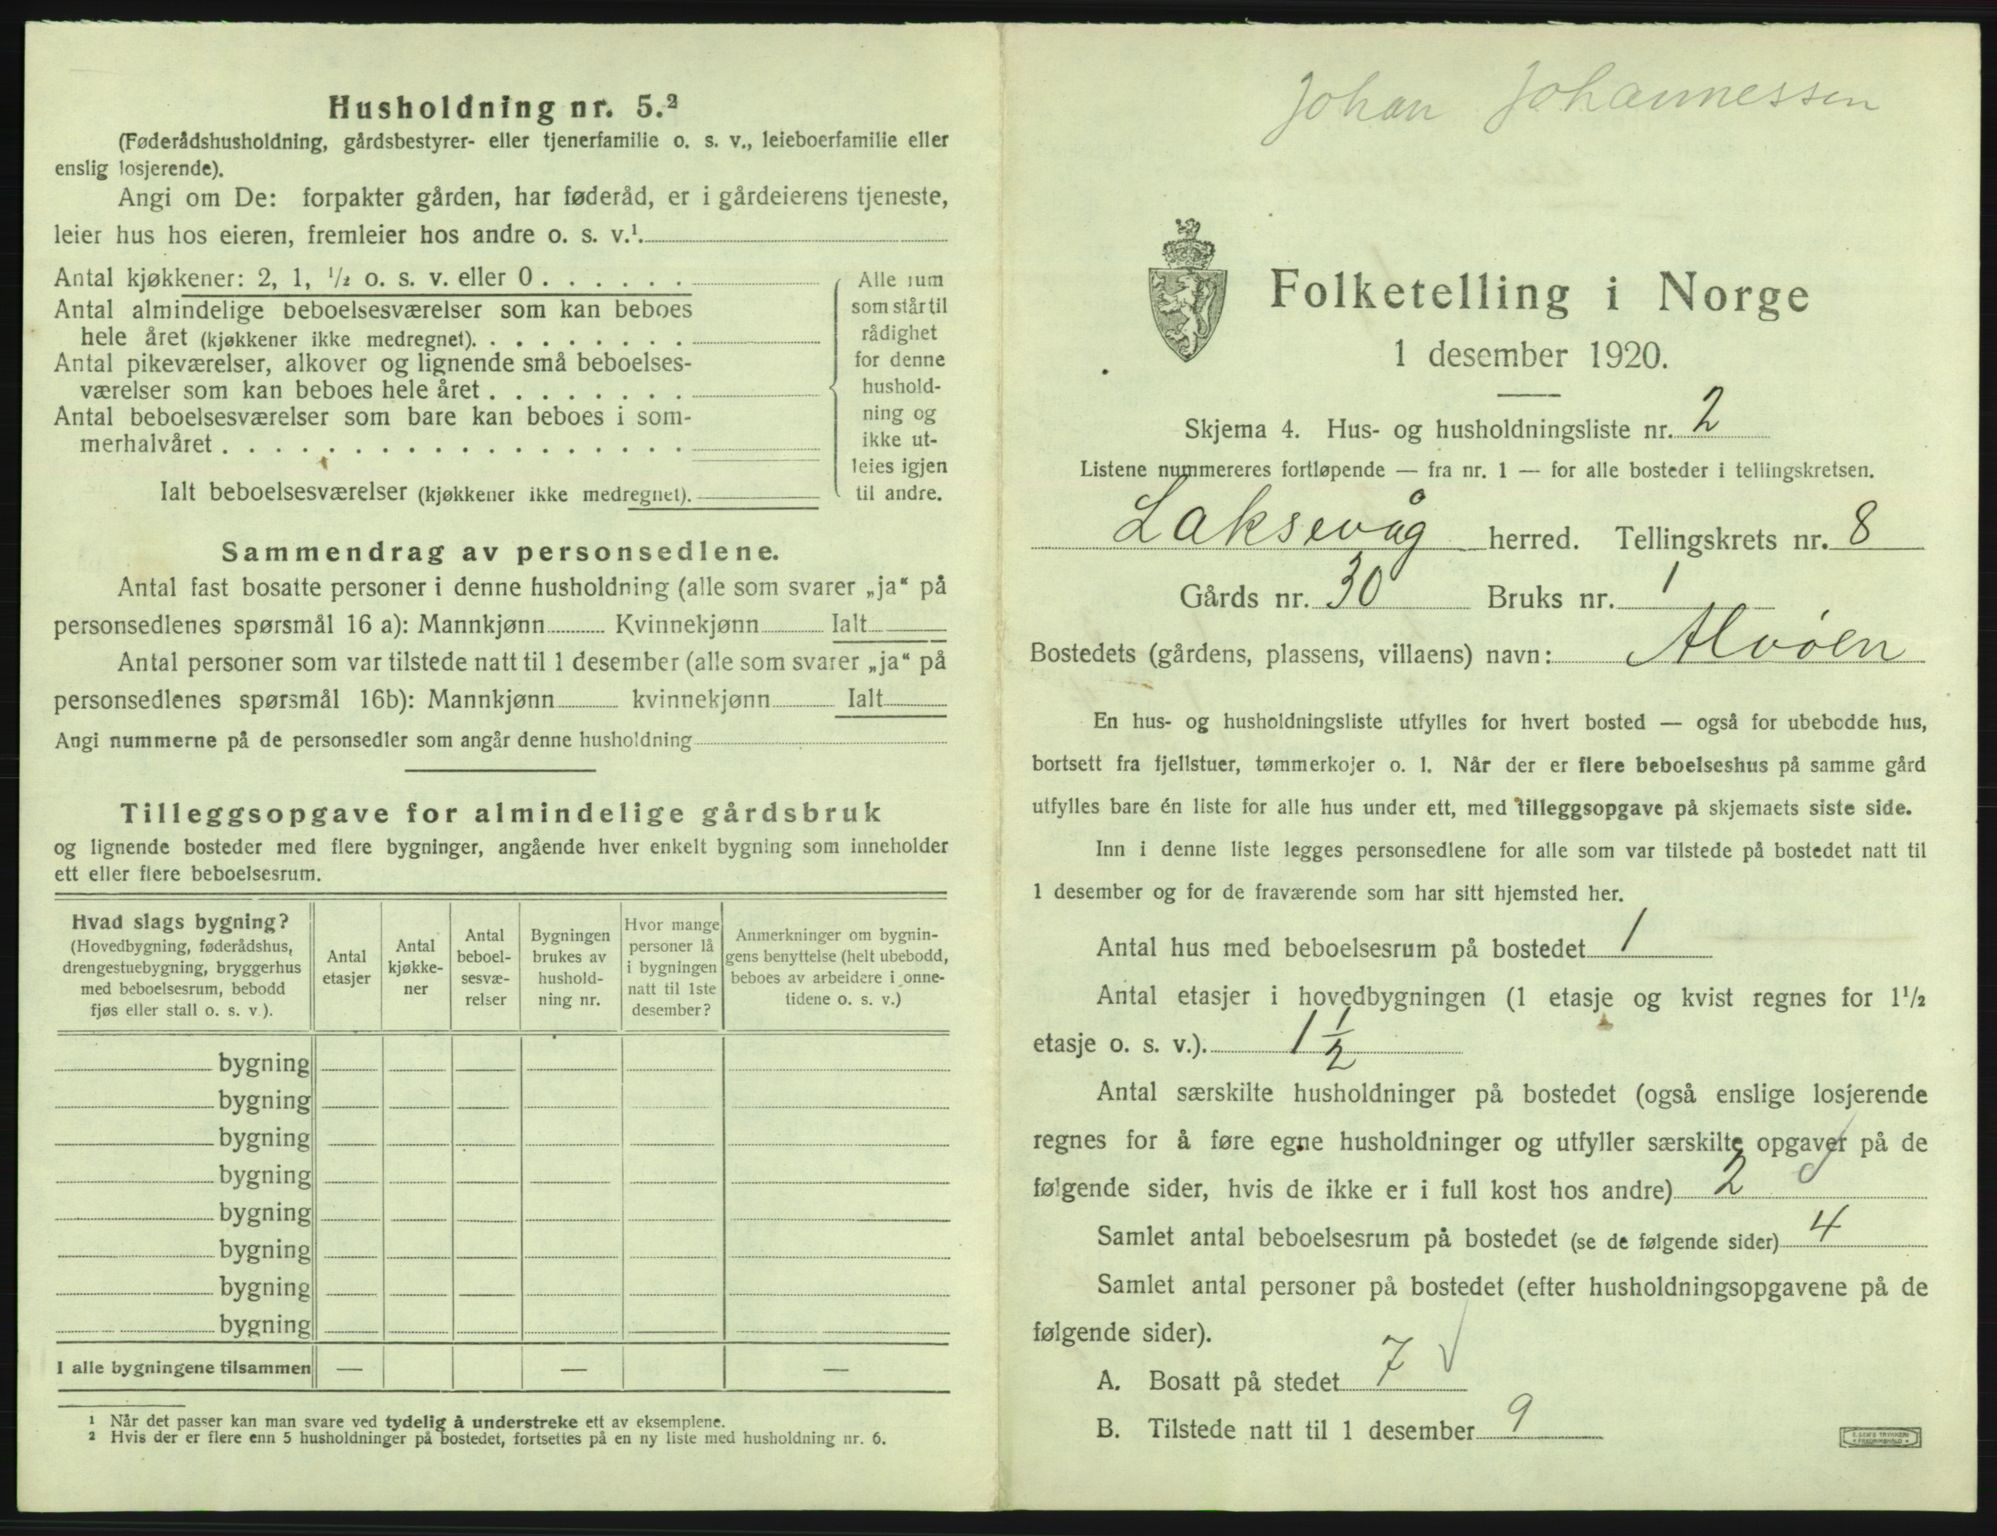 Husholdning nr. 5.²
(Føderådshusholdning, gårdsbestyrer- eller tjenerfamilie o. s. v., leieboerfamilie eller
enslig losjerende).
Angi om De: forpakter gården, har føderåd, er i gårdeierens tjeneste,
leier hus hos eieren, fremleier hos andre o. s. v.¹.
Antal kjøkkener: 2, 1, ½ o. s. v. eller 0 . . . . . .
Antal almindelige beboelsesværelser som kan beboes
hele året (kjøkkener ikke medregnet). . . . . . . . .
Antal pikeværelser, alkover og lignende små beboelses-
værelser som kan beboes hele året . . . . . . . .
Antal beboelsesværelser som bare kan beboes i som-
merhalvåret . . . . . . . . . . . . . . . . . .
Ialt beboelsesværelser (kjøkkener ikke medregnet).
Alle rum
som står til
rådighet
for denne
hushold-
ning og
ikke ut-
leies igjen
til andre.
Sammendrag av personsedlene.
Antal fast bosatte personer i denne husholdning (alle som svarer „ja“ på
personsedlenes spørsmål 16 a): Mannkjønn Kvinnekjønn Ialt
Antal personer som var tilstede natt til 1 desember (alle som svarer „ja“ på
personsedlenes spørsmål 16b): Mannkjønn kvinnekjønn Ialt
Angi nummerne på de personsedler som angår denne husholdning
Tilleggsopgave for almindelige gårdsbruk
og lignende bosteder med flere bygninger, angående hver enkelt bygning som inneholder
ett eller flere beboelsesrum.
Hvad slags bygning?
(Hovedbygning, føderådshus,
drengestuebygning, bryggerhus
med beboelsesrum, bebodd
fjøs eller stall o. s. v.).
Antal
etasjer
Antal
kjøkke-
ner
Antal
beboel-
sesvæ-
relser
Bygningen
brukes av
hushold-
ning nr.
Hvor mange
personer lå
i bygningen
natt til 1ste
desember?
Anmerkninger om bygnin-
gens benyttelse (helt ubebodd,
beboes av arbeidere i onne-
tidene o. s. v.)
bygning
bygning
bygning
bygning
bygning
bygning
bygning
bygning
I alle bygningene tilsammen — — —
¹ Når det passer kan man svare ved tydelig å understreke ett av eksemplene.
² Hvis der er flere enn 5 husholdninger på bostedet, fortsettes på en ny liste med husholdning nr. 6.
Johan Johannessen
Folketelling i Norge
1 desember 1920.
Skjema 4. Hus- og husholdningsliste nr. 2
Listene nummereres fortløpende — fra nr. 1 — for alle bosteder i tellingskretsen.
Laksevåg herred. Tellingskrets nr. 8
Gårds nr. 30 Bruks nr. 1
Bostedets (gårdens, plassens, villaens) navn: Alvøen
En hus- og husholdningsliste utfylles for hvert bosted — også for ubebodde hus,
bortsett fra fjellstuer, tømmerkojer o. l. Når der er flere beboelseshus på samme gård
utfylles bare én liste for alle hus under ett, med tilleggsopgave på skjemaets siste side.
Inn i denne liste legges personsedlene for alle som var tilstede på bostedet natt til
1 desember og for de fraværende som har sitt hjemsted her.
Antal hus med beboelsesrum på bostedet 1
Antal etasjer i hovedbygningen (1 etasje og kvist regnes for 1½
etasje o. s. v.). 1 ½
Antal særskilte husholdninger på bostedet (også enslige losjerende
regnes for å føre egne husholdninger og utfyller særskilte opgaver på de
følgende sider, hvis de ikke er i full kost hos andre) 2
Samlet antal beboelsesrum på bostedet (se de følgende sider) 4
Samlet antal personer på bostedet (efter husholdningsopgavene på de
følgende sider).
A. Bosatt på stedet 7
B. Tilstede natt til 1 desember 9